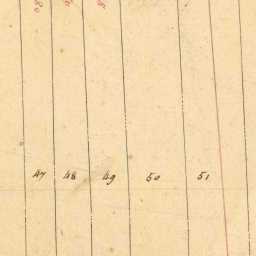 47 48 49 50 51